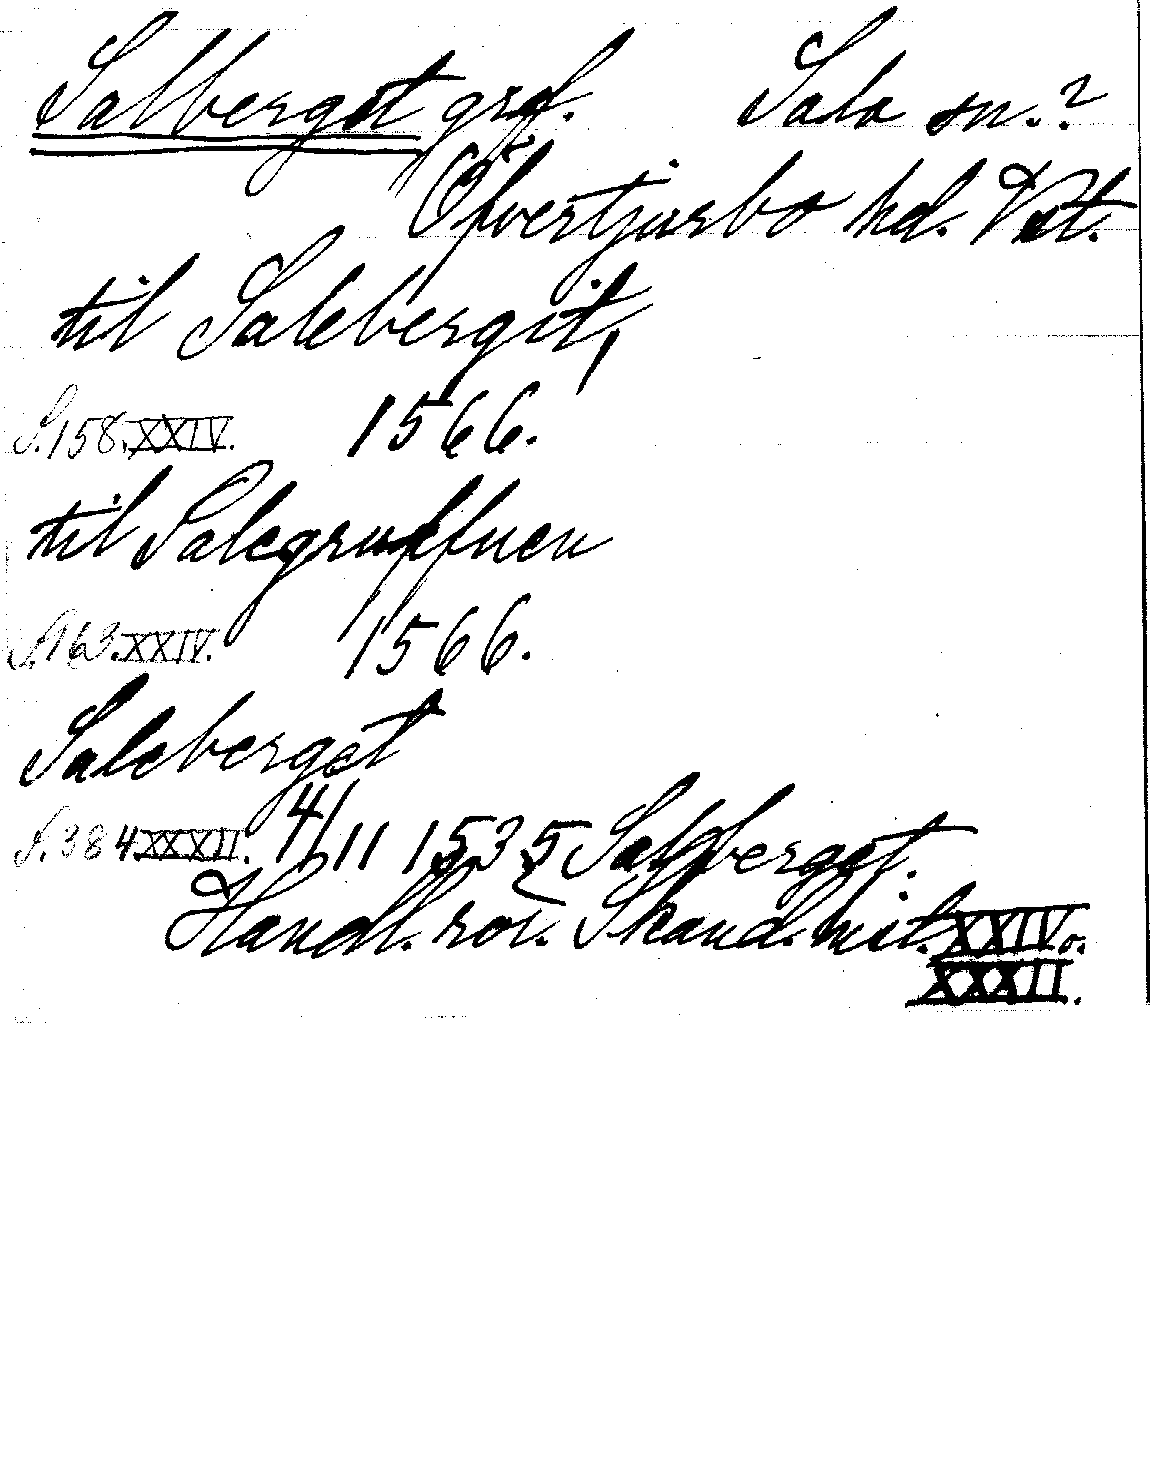 Salberget grf. Sala sn.?
Öfvertjurbo hd. Vst.
til Salebergit,
S.158.XXIV. 1566.
til Salegruffuen
S.163.XXIV. 1566.
Saleberget
S.384 XXXII. 4/11 1535 Salberget.
Handl. rör. Skand. hist. XXIV o.
XXXII.